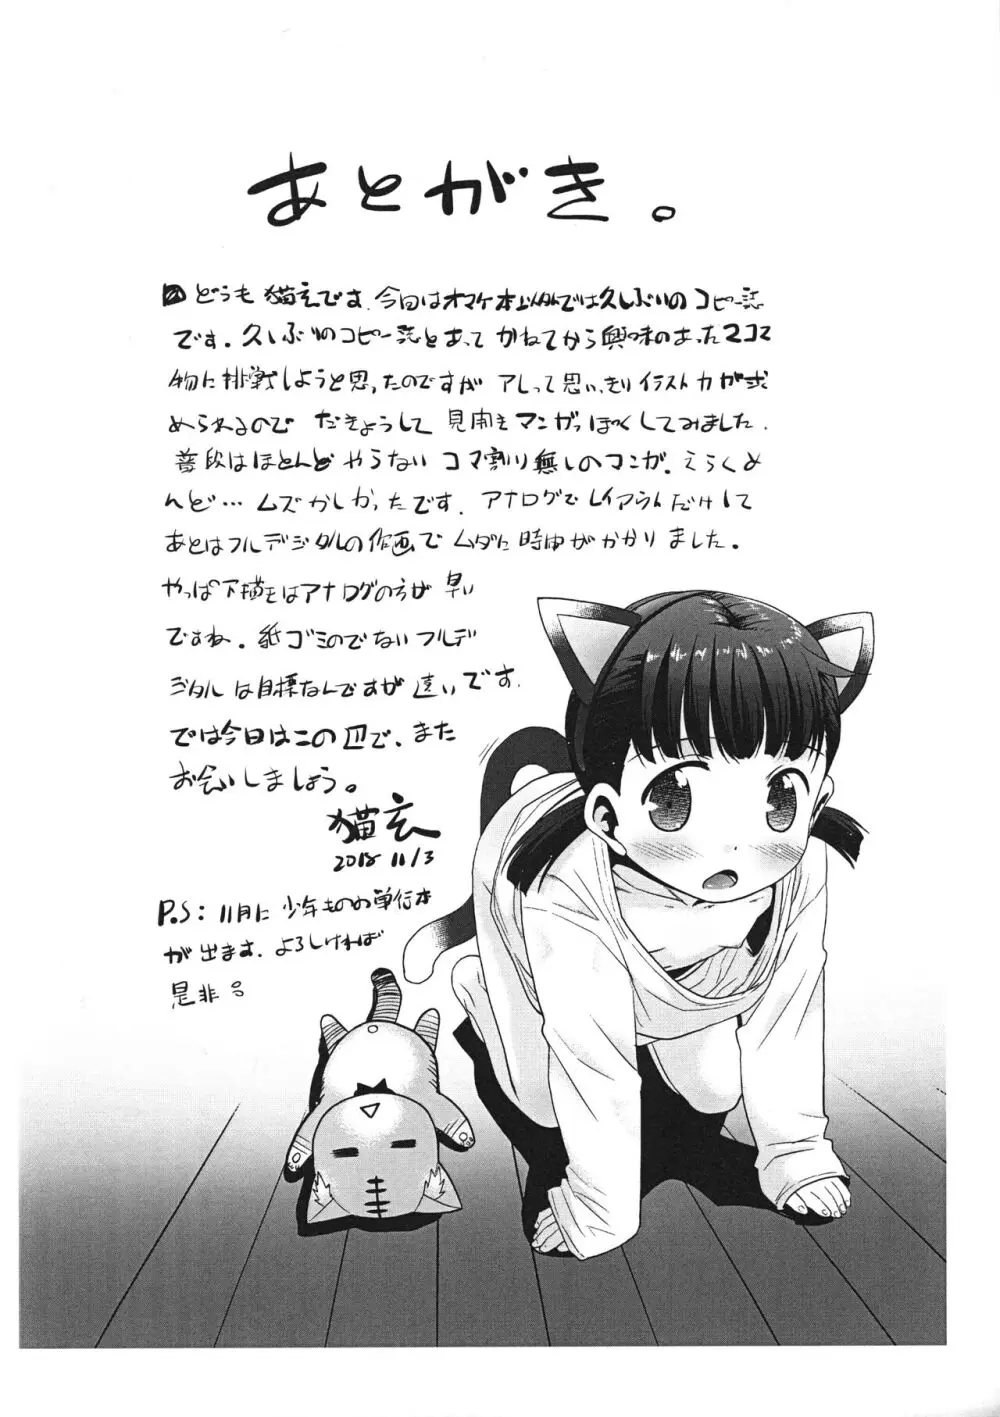 あとがき。
どうも猫玄です。今回はオマケ本以外では久しぶりのコピー誌
です。久しぶりのコピー誌とあって かねてから興味のあった 2コマ
物に挑戦しようと思ったのですが アレって思いっきりイラスト力が求
められるので だきょうして 見開きマンガっぽくしてみました。
普段はほとんど やらない コマ割り無しのマンガ。えらくめ
んど… ムズかしかったです。アナログでレイアウトだけして
あとはフルデジタルの作画で ムダに 時間がかかりました。
やっぱ下描きはアナログの方が 早い
ですね。紙ゴミのでない フルデ
ジタルは目標なんですが 遠いです。
では今日はこの辺で、また
お会いしましょう。
猫玄
2018 11/3
P.S: 11月に 少年ものの単行本
が出ます。よろしければ
是非。